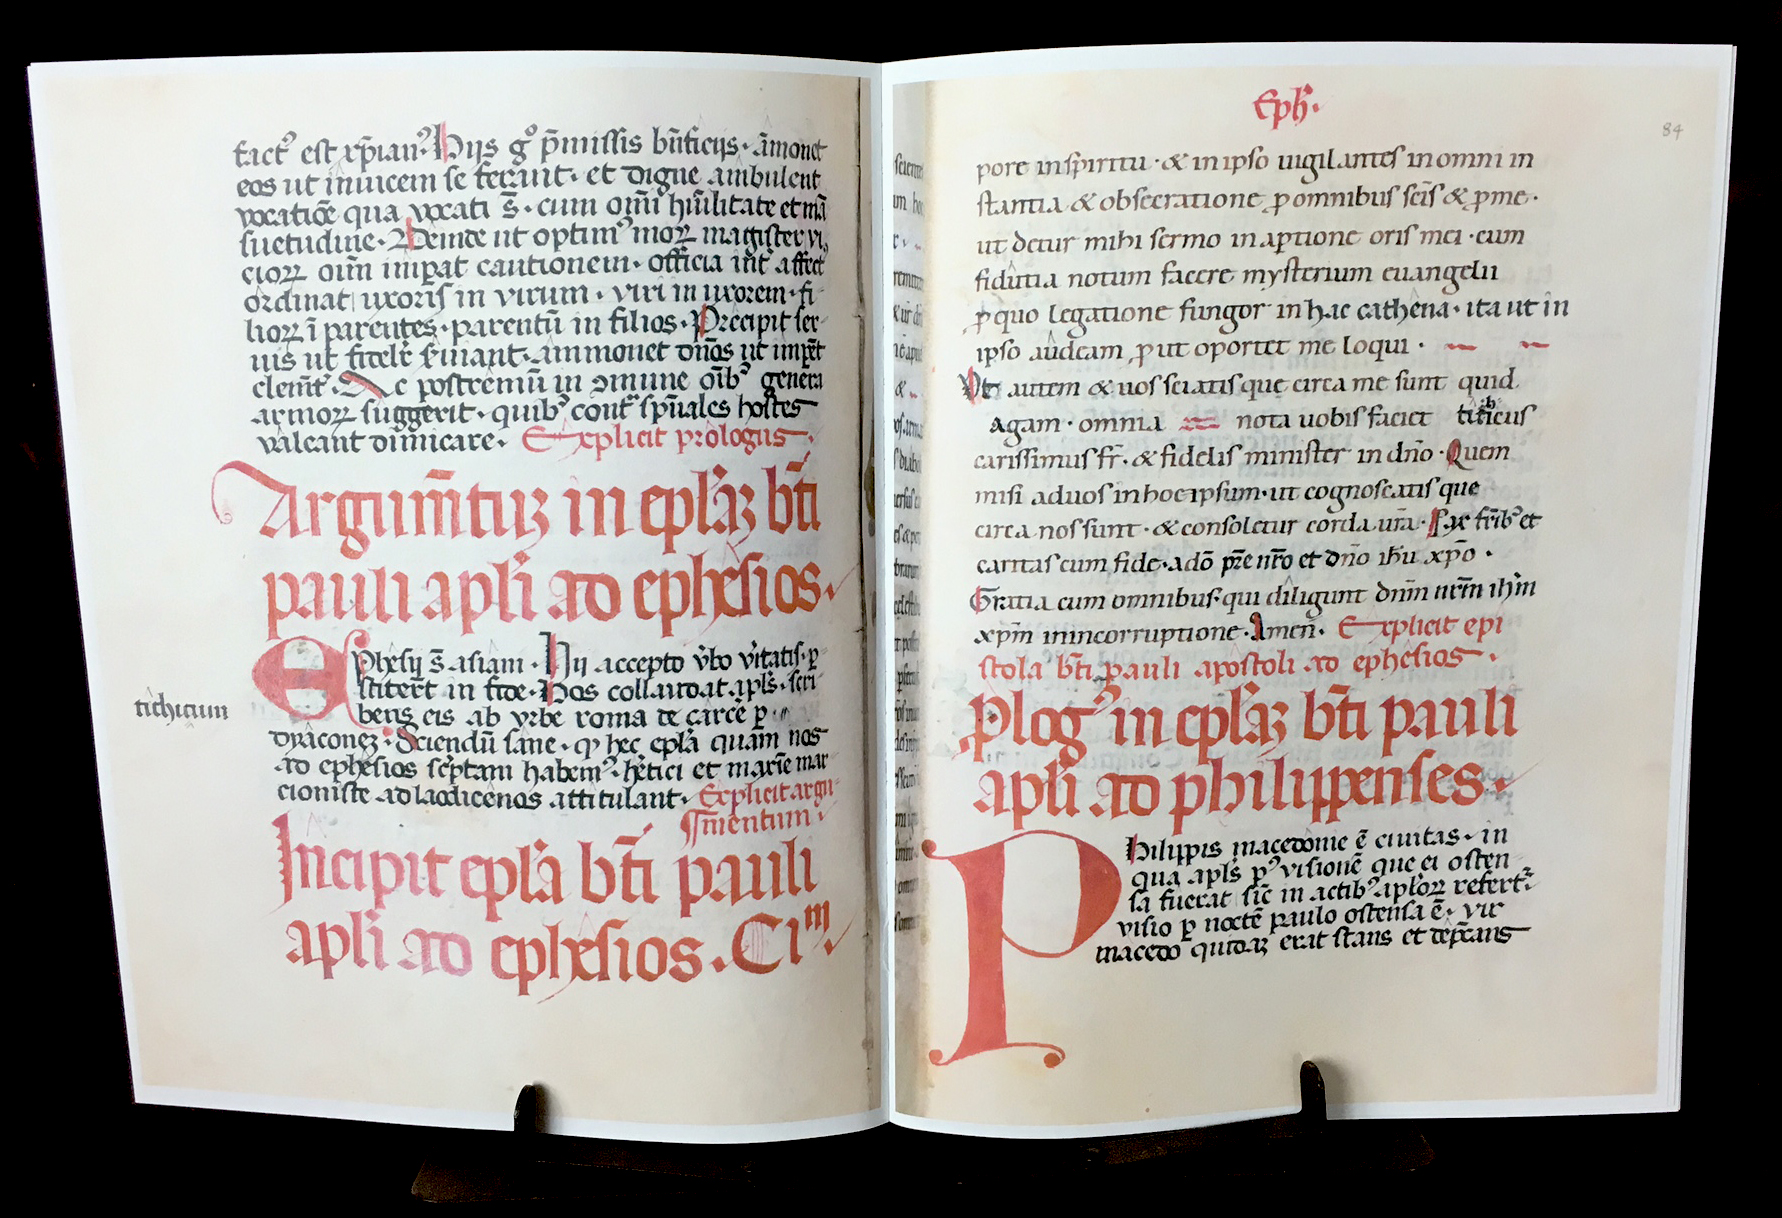 fact᷒ est xp̄ian᷒. Hijs gº p̄missis bn̄ficijs. āmonet
eos ut inuicem se ferāt. et digne ambulent
vocatiōe qua vocati s̄. cum om̄i hūilitate et mā
suetudine. Deinde ut optim᷒ moꝝ magister vi
cioꝝ oīm imꝑat cautionem. officia int̄ affect
ordinat uxoris in virum. viri in uxorem. fi
lioꝝ ī parentes. parentū in filios. Precipit ser
uis ut fidelr̄ s̄uiant. ammonet dn̄os ut imꝑēt
clemt̄. Ac postremū in ꝯmune oīb᷒ genera
armoꝝ suggerit. quib᷒ contᷓ spūales hostes
valeant dimicare. Explicit prologus.
Argum̄tuꝫ in epl̄aꝫ bt̄i
pauli apl̄i ad ephesios.
Ephesij s̄ asiani. Hij accepto v̄bo v̄itatis. ꝑ
stiterūt in fide. Hos collaudat apl̄s. scri
bens eis ab vrbe roma de carce ꝑ
tichicum
dyaconeꝫ. Sciendū sane. ꝙ hec epl̄a quam nos
ad ephesios sc̄ptam habem᷒. h̄etici et maxīe mar
cioniste ad laodicenos attitulant. Explicit argu
mentum.
Incipit epl̄a bt̄i pauli
apl̄i ad ephesios. Cᵐ I.
Eph̄.
84
pore in sp̄iritu. & in ipso uigilantes in omni in
stantia & obsecratione ꝑ omnibus sc̄is & ꝑ me.
ut detur mihi sermo in aptione oris mei. cum
fidutia notum facere mysterium euangelii
ꝑ quo legatione fungor in hac cathena. ita ut in
ipso audeam, ꝓut oportet me loqui.
Vt autem & uos sciatis que circa me sunt quid
agam. omnia nota uobis faciet titicus
carissimus fr̄. & fidelis minister in dn̄o. Quem
misi ad uos in hoc ipsum. ut cognoscatis que
circa nos sunt. & consoletur corda ur̄a. Pax fr̄ib᷒ et
caritas cum fide. a dō pr̄e nr̄o et dn̄o ih̄u xp̄o.
Gratia cum omnibus. qui diligunt dnm̄ nr̄m ih̄m
xp̄m in incorruptione. Amen̄. Explicit epi
stola bt̄i pauli apostoli ad ephesios.
Plog᷒ in epl̄aꝫ bt̄i pauli
apl̄i ad philippenses.
Philippis macedonie ē ciuitas. in
qua apl̄s p᷒ visionē que ei osten
sa fuerat sic̄ in actib᷒ apl̄oꝝ refert᷑.
visio ꝑ noctē paulo ostensa ē. vir
macedo quidaꝫ erat stans et dep̄cans